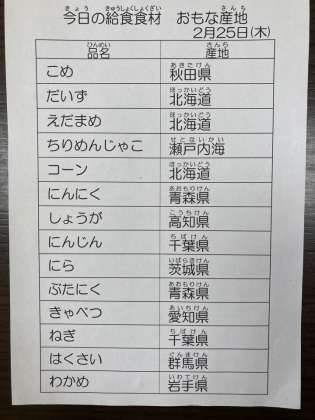 今日の給食食材 おもな産地
2月25日(木)
品名 産地
こめ 秋田県
だいず 北海道
えだまめ 北海道
ちりめんじゃこ 瀬戸内海
コーン 北海道
にんにく 青森県
しょうが 高知県
にんじん 千葉県
にら 茨城県
ぶたにく 青森県
きゃべつ 愛知県
ねぎ 千葉県
はくさい 群馬県
わかめ 岩手県